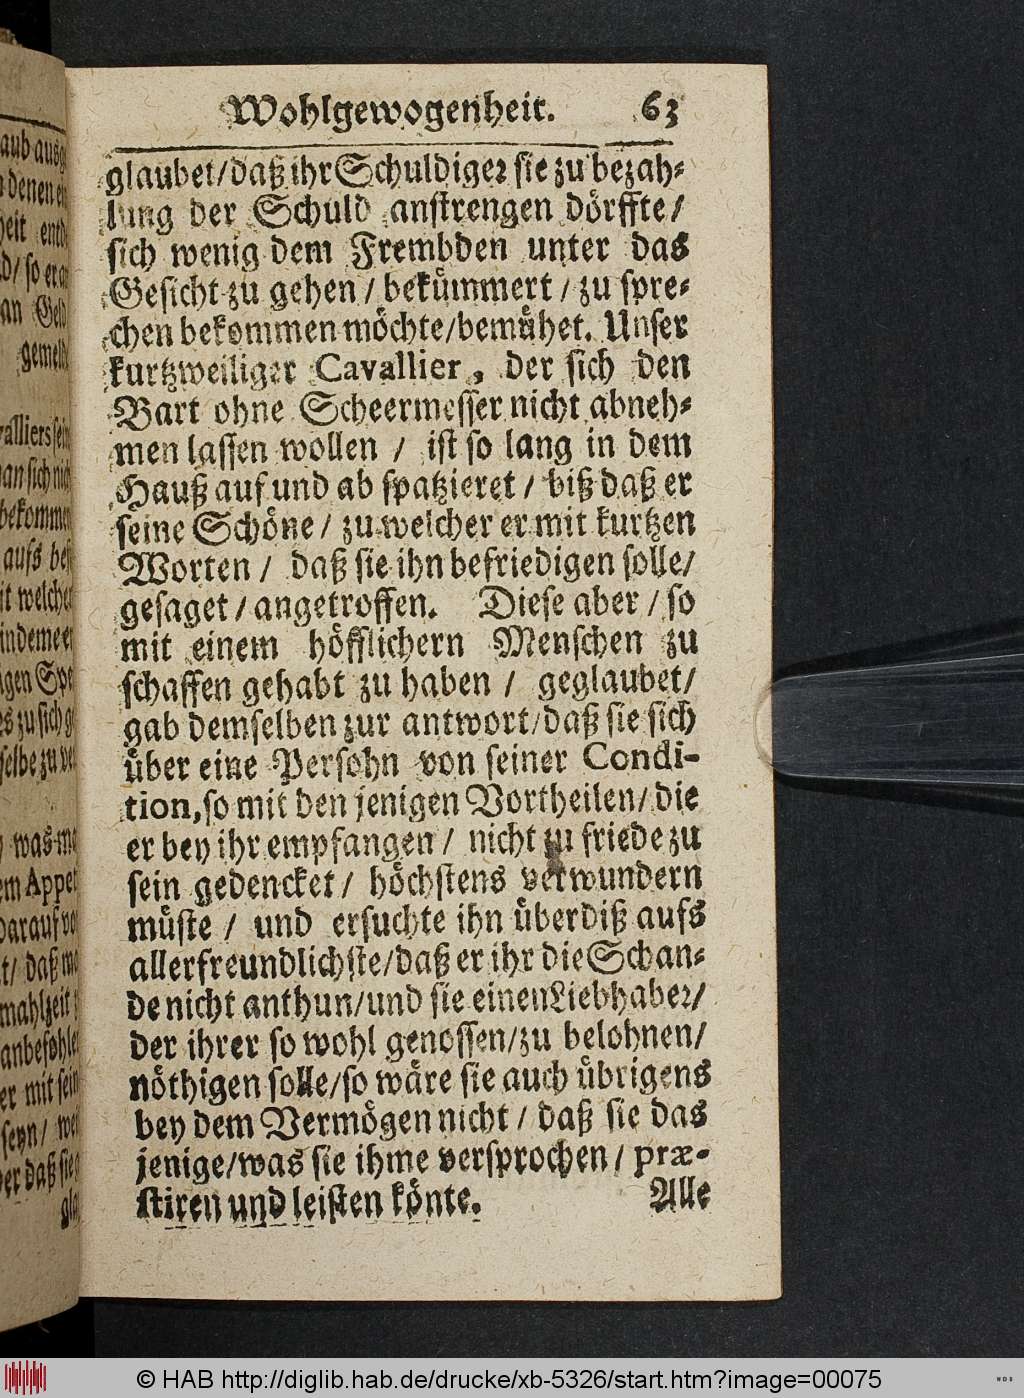 Wohlgewogenheit. 63
glaubet/daß ihr Schuldiger sie zu bezah-
lung der Schuld anstrengen dörffte/
sich wenig dem Frembden unter das
Gesicht zu gehen / bekümmert / zu spre-
chen bekommen möchte/bemühet. Unser
kurtzweiliger Cavallier, der sich den
Bart ohne Scheermesser nicht abneh-
men lassen wollen / ist so lang in dem
Hauß auf und ab spatzieret / biß daß er
seine Schöne / zu welcher er mit kurtzen
Worten / daß sie ihn befriedigen solle/
gesaget / angetroffen. Diese aber / so
mit einem höfflichern Menschen zu
schaffen gehabt zu haben / geglaubet/
gab demselben zur antwort/daß sie sich
über eine Persohn von seiner Condi-
tion, so mit den jenigen Vortheilen/ die
er bey ihr empfangen / nicht zu friede zu
sein gedencket / höchstens verwundern
müste / und ersuchte ihn überdiß aufs
allerfreundlichste/daß er ihr die Schan-
de nicht anthun/und sie einen Liebhaber/
der ihrer so wohl genossen/zu belohnen/
nöthigen solle/so wäre sie auch übrigens
bey dem Vermögen nicht / daß sie das
jenige/was sie ihme versprochen / præ-
stiren und leisten könte.
Alle
aub ausg
denen ein
heit entd
d/ so er
an Geld
gemeld
valliers sein
an sich nich
bekommen
aufs bes
it welcher
indeme er
igen Spe
es zu sich g
selbe zu ve
was ma
em Appet
darauf vo
t/ daß
mahlzeit
anbefohle
er mit sein
seyn/ we
er daß sie
gla
© HAB http://diglib.hab.de/drucke/xb-5326/start.htm?image=00075
WDB